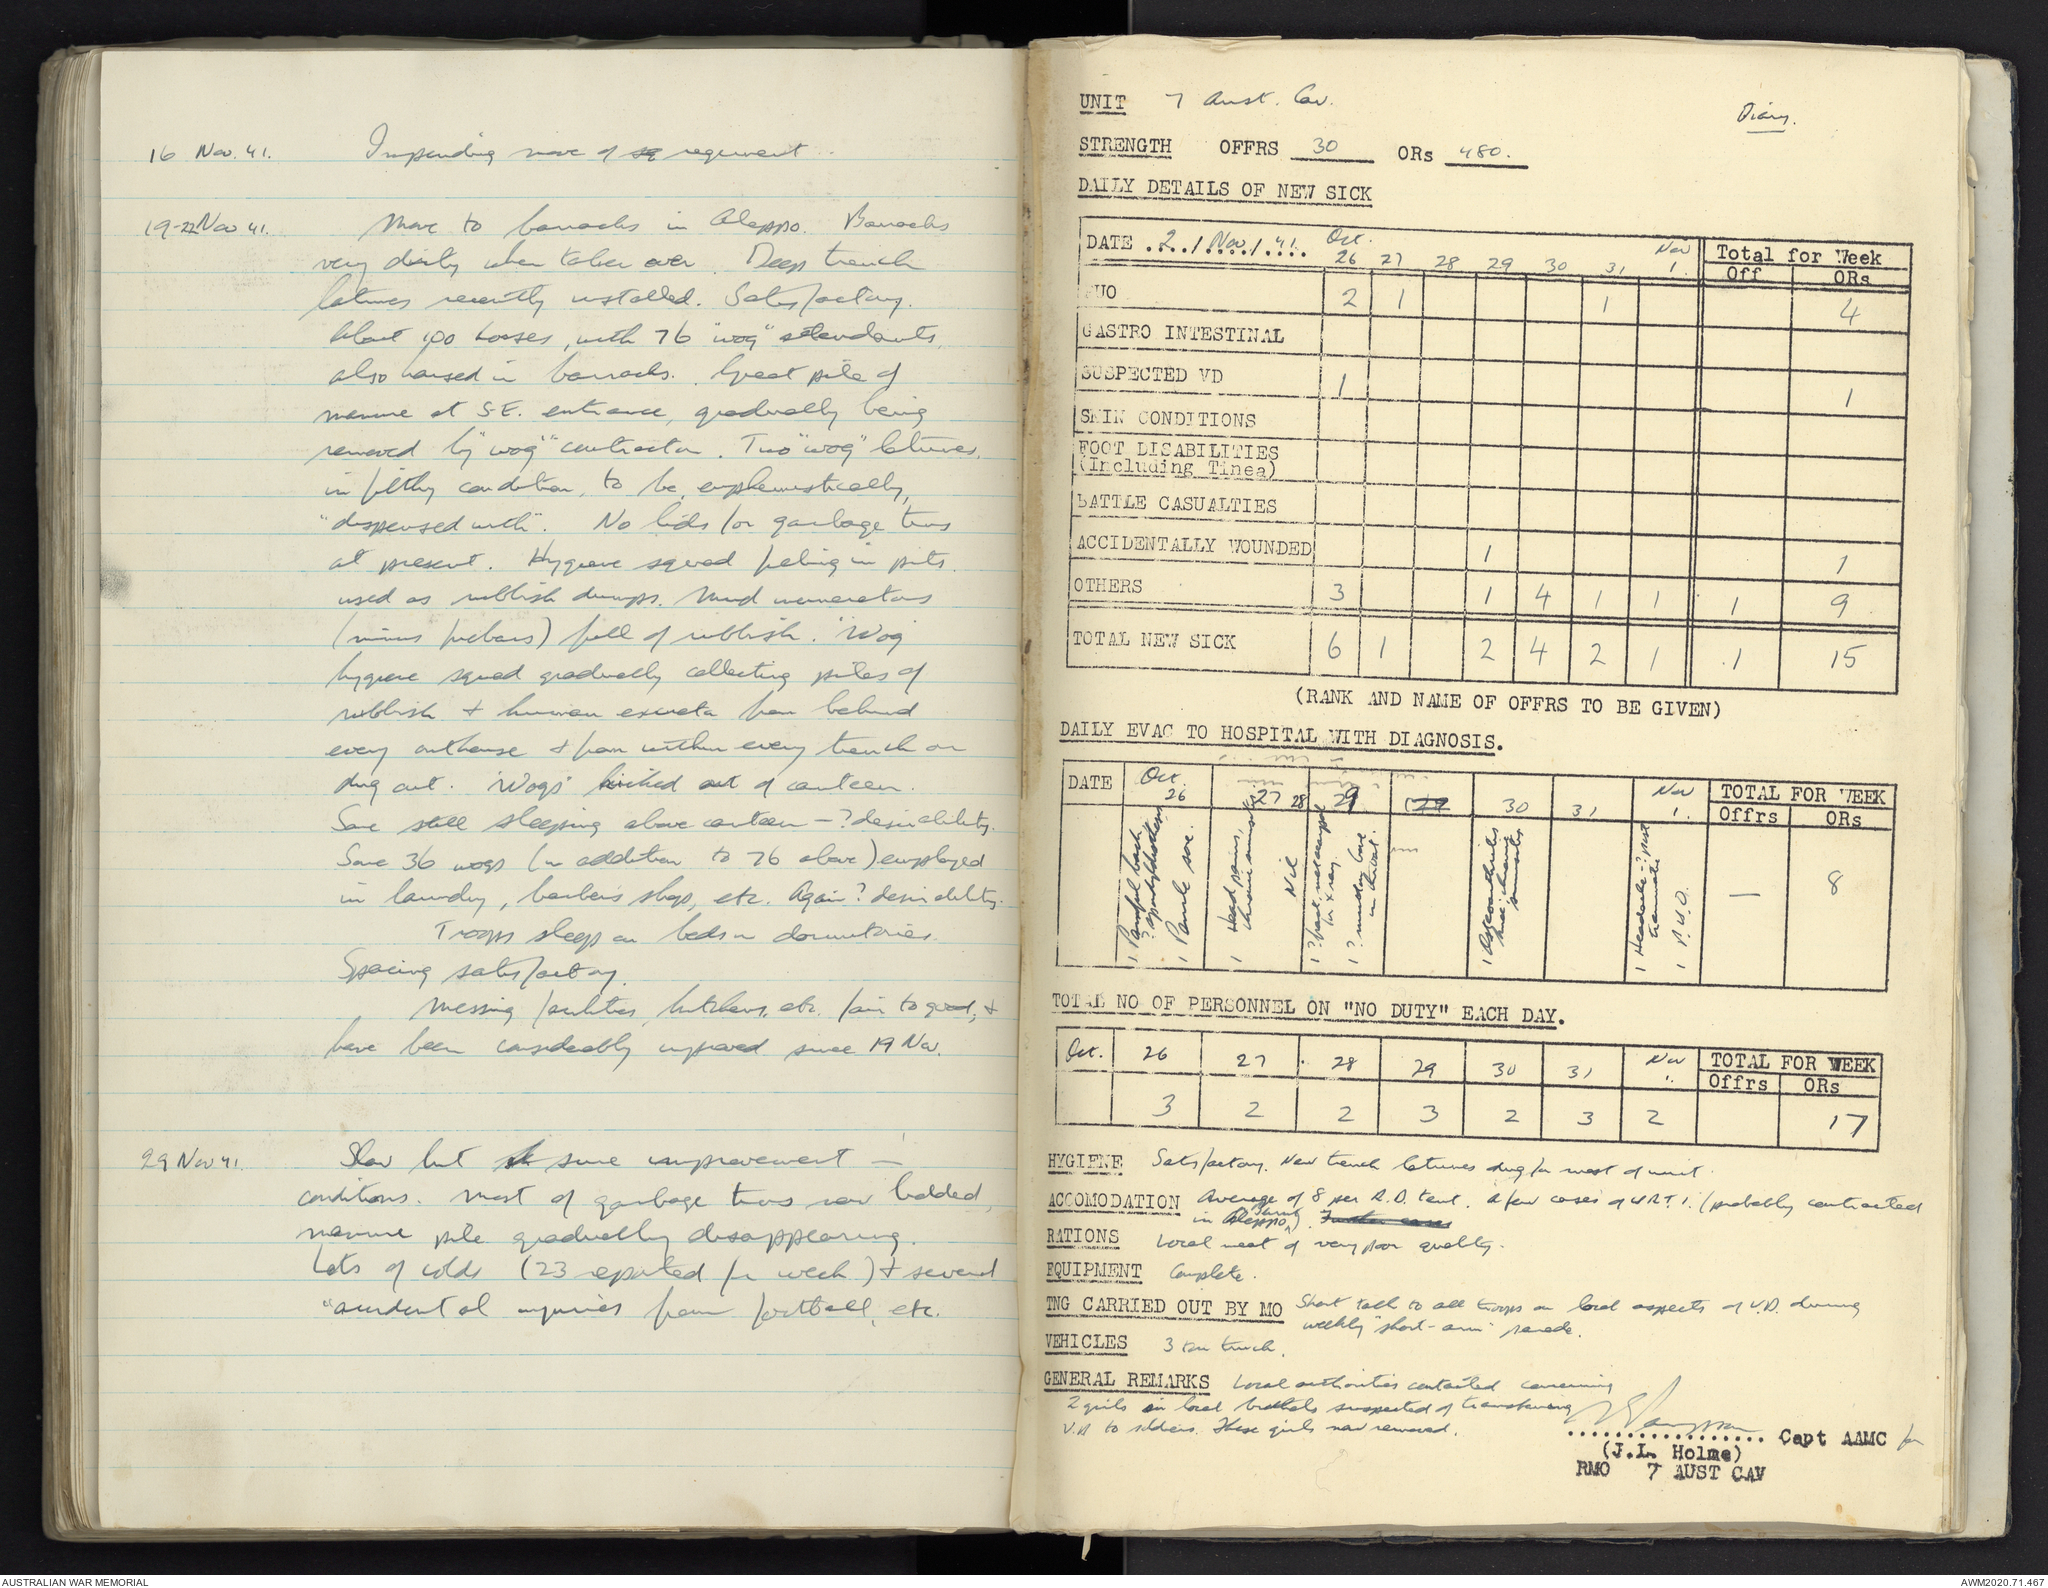 16 Nov. 41. Impending move of regiment.
19-22 Nov 41. Move to barracks in Aleppo. Barracks
very dirty when taken over. Deep trench
latrines recently installed. Satisfactory.
About 100 horses, with 76 "wog" attendants,
also housed in barracks. Great pile of
manure at S.E. entrance, gradually being
removed by "wog" contractor. Two "wog" latrines,
in filthy condition, to be, euphemistically,
"dispensed with". No lids for garbage tins
at present. Hygiene squad filling in pits
used as rubbish dumps. Mud incinerators
(minus firebars) full of rubbish. "Wog"
hygiene squad gradually collecting piles of
rubbish & human excreta from behind
every outhouse & from within every trench or
dug out. "Wogs" kicked out of canteen.
Some still sleeping above canteen - ? desirability.
Some 36 wogs (in addition to 76 above) employed
in laundry, barber's shop, etc. Again ? desirability.
Troops sleep on beds in dormitories.
Spacing satisfactory.
Messing facilities, kitchens, etc. fair to good, &
have been considerably improved since 19 Nov.
29 Nov 41. Slow but sure improvement in
conditions. Most of garbage tins now lidded,
manure pile gradually disappearing.
Lots of colds (23 reported for week) & several
"accidental injuries from football, etc.
UNIT 7 Aust. Cav.
Diary.
STRENGTH OFFRS 30 ORs 480.
DAILY DETAILS OF NEW SICK
DATE 2/Nov/41. Oct. 26 27 28 29 30 31 Nov 1. Total for Week
Off ORs
PUO 2 1 1 4
GASTRO INTESTINAL
SUSPECTED VD 1 1
SKIN CONDITIONS
FOOT DISABILITIES
(Including Tinea)
BATTLE CASUALTIES
ACCIDENTALLY WOUNDED 1 1
OTHERS 3 1 4 1 1 1 9
TOTAL NEW SICK 6 1 2 4 2 1 1 15
(RANK AND NAME OF OFFRS TO BE GIVEN)
DAILY EVAC TO HOSPITAL WITH DIAGNOSIS.
DATE Oct. 26 27 28 29 29 30 31 Nov 1. TOTAL FOR WEEK
Offrs ORs
1 Painful back
? spondylolisthesis
1 Penile sore.
1 Head pains,
chronic sinusitis
Nil
1 ? fract.
for x ray.
1 ? bone
in throat.
1 Osteoarthritis
knee: chronic
synovitis
1 Headache ? post
traumatic
1 P.U.O.
— 8
TOTAL NO OF PERSONNEL ON "NO DUTY" EACH DAY.
Oct. 26 27 28 29 30 31 Nov 1. TOTAL FOR WEEK
Offrs ORs
3 2 2 3 2 3 2 17
HYGIENE Satisfactory. New trench latrines dug for most of unit.
ACCOMODATION Average of 8 per R.D. tent. A few cases of U.R.T.I. (probably contracted
in Aleppo). Further cases
RATIONS Local meat of very poor quality.
EQUIPMENT Complete.
TNG CARRIED OUT BY MO Short talk to all troops on local aspects of V.D. during
weekly "short-arm" parade.
VEHICLES 3 ton truck.
GENERAL REMARKS Local authorities contacted concerning
2 girls in local brothels suspected of transferring
V.D. to soldiers. These girls now removed.
Capt AAMC for
(J.L. Holme)
RMO 7 AUST CAV
AUSTRALIAN WAR MEMORIAL
AWM2020.71.467